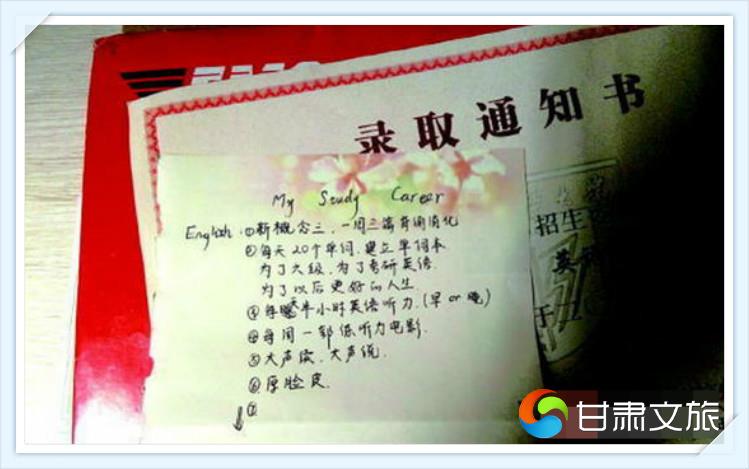 录取通知书
My Study Career
English: ①新概念三,一周三篇背诵消化
②每天20个单词,建立单词本
为了六级,为了考研英语
为了以后更好的人生
③每天半小时英语听力.(早or晚)
④每周一部练听力电影.
⑤大声读,大声说.
⑥厚脸皮.
⑦
招生
英
于二〇
甘肃文旅